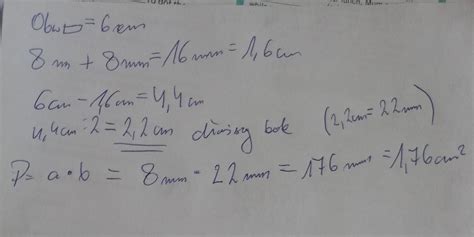 Obw▭ = 6cm
8m + 8mm = 16mm = 1,6cm
6cm - 1,6cm = 4,4cm
4,4cm : 2 = 2,2cm dłuższy bok (2,2cm = 22mm)
P = a • b = 8mm • 22mm = 176mm² = 1,76cm²